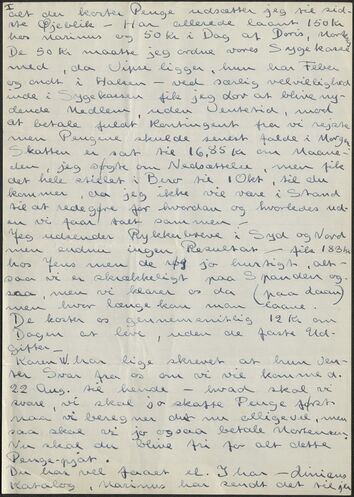 I
at det korter Penge udsætter jeg til sid-
ste Øjeblik – Har allerede laant 150 Kr
hos Marinus og 50 Kr i Dag af Doris,
De 50 Kr maatte jeg ordne vores Sygekasse
med, da Vipse ligger, hun har Feber
og ondt i Halsen – ved særlig velvillighed
inde i Sygekassen fik jeg dor at blive ny-
dende Medlem, uden Ventetid, mod
at betale fuldt Kontingent fra vi rejste
men Pengene skulde senest falde i Morgen
Skatten er sat til 16,85 Kr om Maane-
den, jeg søgte om Nedsættelse, men fik
det hele stillet i Bero til 1 Okt, til du
kommer, da jeg ikke vil være i Stand
til at redegøre for hvordan og hvorledes ud-
en vi faar talt sammen –
Jeg udsender Rykkerbreve i Syd og Nord
men endnu ingen Resultat – fik 183 Kr
hos Jens men de jo hurtigt, alt-
saa vi er skrækkeligt paa Spanden og-
saa, men vi klarer os da (paa daari)
men hvor længe kan man laane.
Det koster os gennemsnitlig 12 Kr om
Dagen at leve, uden de faste Ud-
gifter –
Karen W. har lige skrevet at hun ven-
ter Svar fra os om vi vil komme d.
22 Aug. til hende – hvad skal vi
svare, vi skal jo skaffe Penge først
naa, vi beregner det nu alligevel, men
saa skal vi jo ogsaa betale Mortensen,
Nu skal du blive fri for alt dette
Penge-pjat.
Du har vel faaet el. I har – diniens
Katalog, Marinus har sendt det til jer